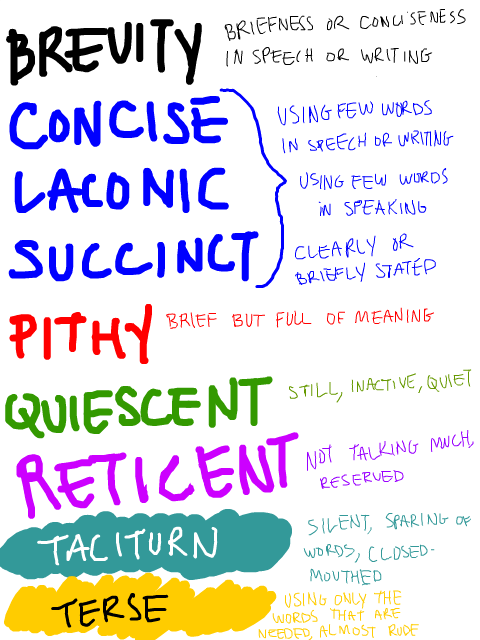 BREVITY
BRIEFNESS OR CONCISENESS
IN SPEECH OR WRITING
CONCISE
USING FEW WORDS
IN SPEECH OR WRITING
LACONIC
USING FEW WORDS
IN SPEAKING
SUCCINCT
CLEARLY OR
BRIEFLY STATED
PITHY
BRIEF BUT FULL OF MEANING
QUIESCENT
STILL, INACTIVE, QUIET
RETICENT
NOT TALKING MUCH,
RESERVED
TACITURN
SILENT, SPARING OF
WORDS, CLOSED-
MOUTHED
TERSE
USING ONLY THE
WORDS THAT ARE
NEEDED, ALMOST RUDE